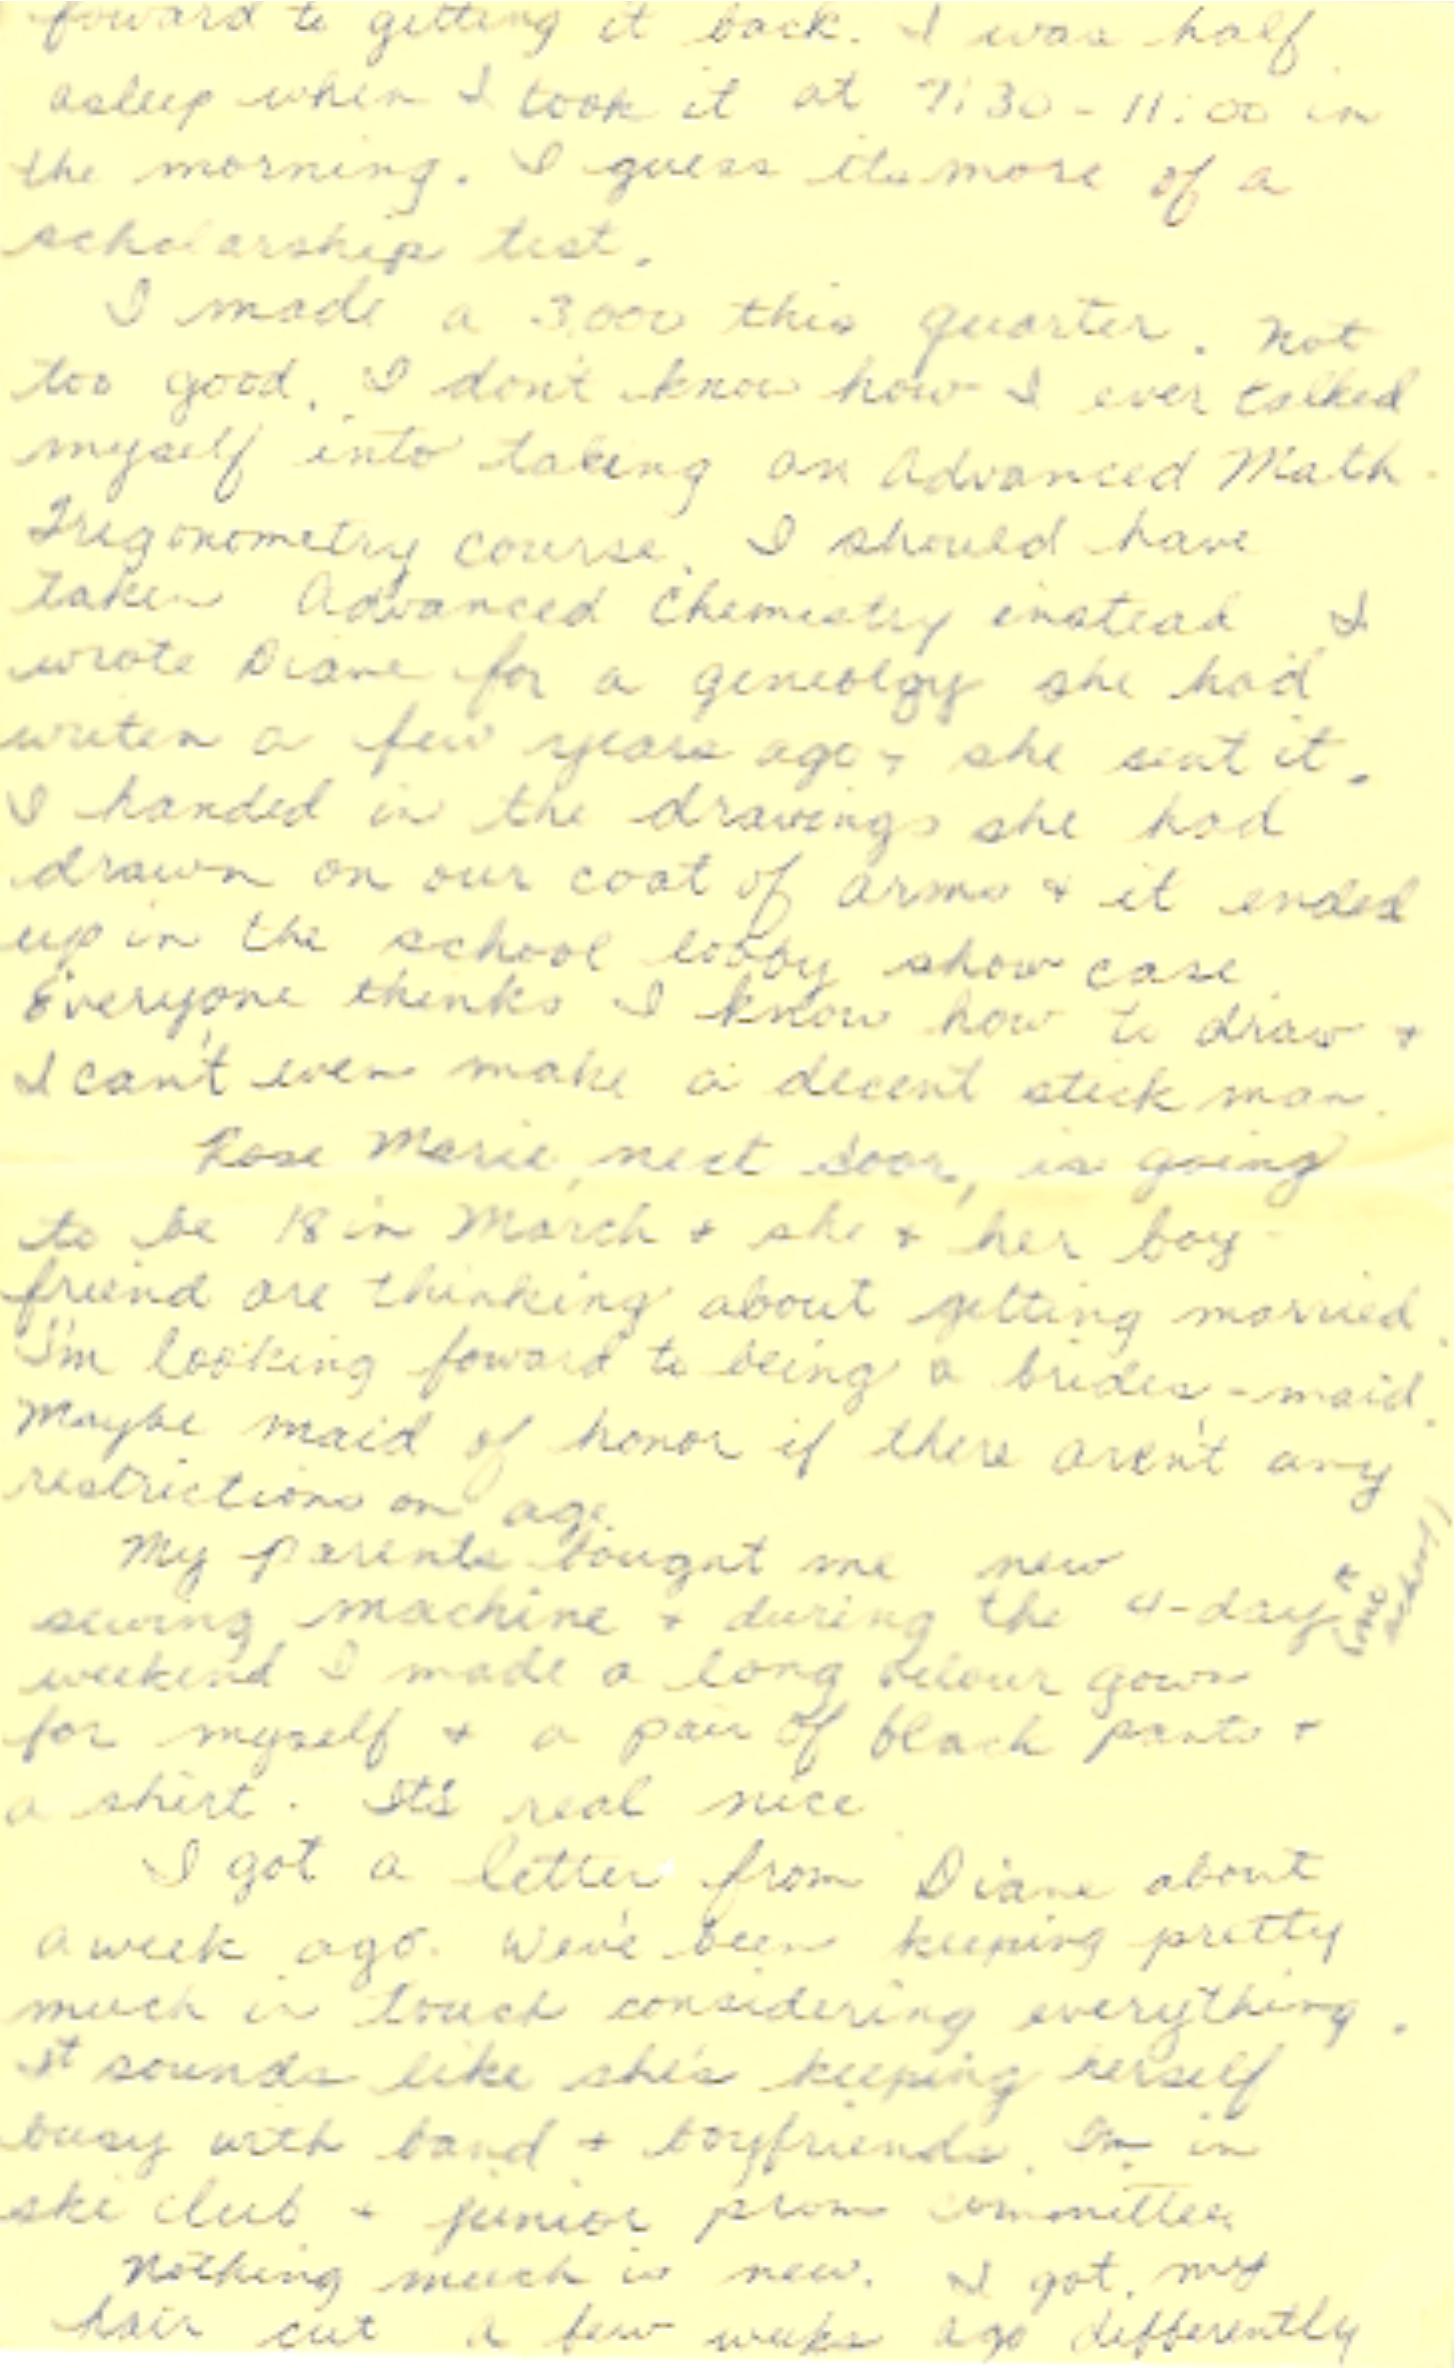 foward to getting it back. I was half
asleep when I took it at 7:30 - 11:00 in
the morning. I guess its more of a
scholarship test.
I made a 3.000 this quarter. Not
too good. I don't know how I ever talked
myself into taking an Advanced Math -
Trigonometry course. I should have
taken Advanced Chemistry instead. I
wrote Diane for a geneolgy she had
writen a few years ago + she sent it.
I handed in the drawings she had
drawn on our coat of arms + it ended
up in the school lobby show case.
Everyone thinks I know how to draw +
I can't even make a decent stick man.
Rose Marie, next door, is going
to be 18 in March + she + her boy-
friend are thinking about getting married.
I'm looking foward to being a brides-maid.
Maybe maid of honor if there aren't any
restrictions on age.
My parents bought me new
sewing machine + during the 4-day (no school)
weekend I made a long velour gown
for myself + a pair of black pants +
a shirt. It's real nice
I got a letter from Diane about
a week ago. We've been keeping pretty
much in touch considering everything.
It sounds like she's keeping herself
busy with band + boyfriends. I'm in
ski club + junior prom committee.
Nothing much is new. I got my
hair cut a few weeks ago differently